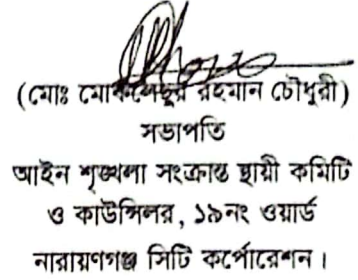 (মোঃ মোকলেছুর রহমান চৌধুরী)
সভাপতি
আইন শৃঙ্খলা সংক্রান্ত স্থায়ী কমিটি
ও কাউন্সিলর, ১৯নং ওয়ার্ড
নারায়ণগঞ্জ সিটি কর্পোরেশন।